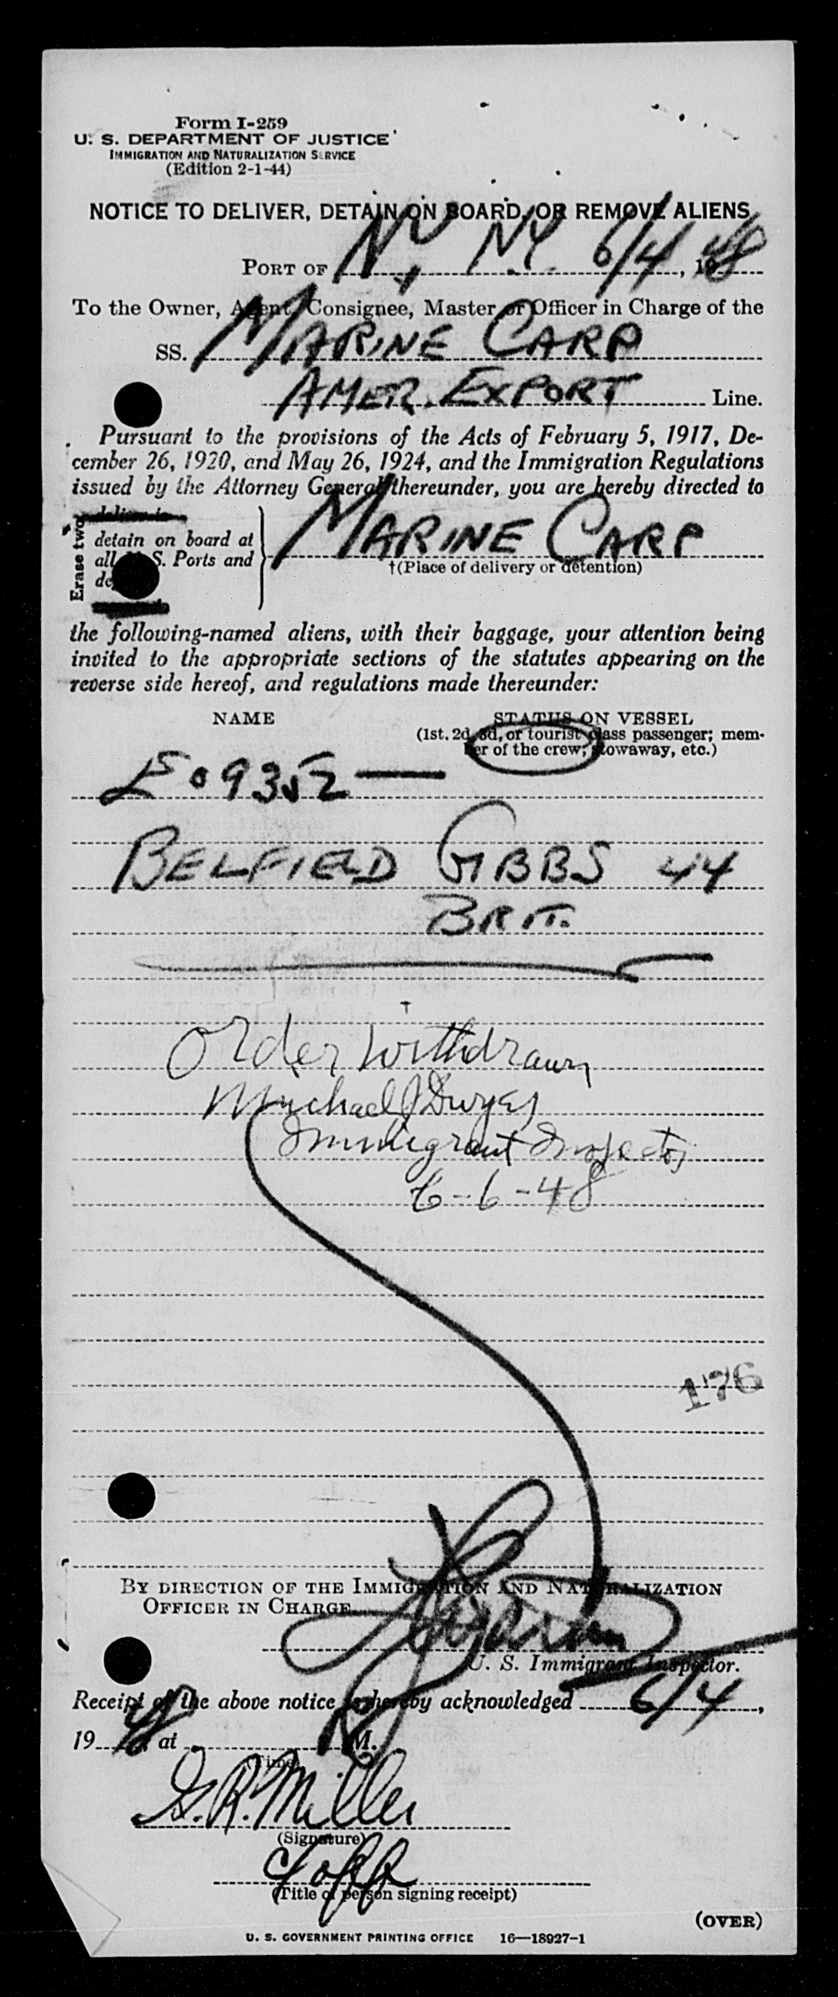 Form I-259
U. S. DEPARTMENT OF JUSTICE
IMMIGRATION AND NATURALIZATION SERVICE
(Edition 2-1-44)
NOTICE TO DELIVER, DETAIN ON BOARD, OR REMOVE ALIENS
PORT OF N.Y. N.Y. 6/4, 1948
To the Owner, Agent, Consignee, Master or Officer in Charge of the
SS. MARINE CARP
AMER. EXPORT Line.
Pursuant to the provisions of the Acts of February 5, 1917, De-
cember 26, 1920, and May 26, 1924, and the Immigration Regulations
issued by the Attorney General thereunder, you are hereby directed to
Erase two
deliver to
detain on board at
all U. S. Ports and
MARINE CARP
†(Place of delivery or detention)
the following-named aliens, with their baggage, your attention being
invited to the appropriate sections of the statutes appearing on the
reverse side hereof, and regulations made thereunder:
NAME STATUS ON VESSEL
(1st. 2d, 3d, or tourist class passenger; mem-
ber of the crew; stowaway, etc.)
09352 —
BELFIELD GIBBS 44
BRIT.
Order Withdrawn
Michael J Dwyer
Immigrant Inspector
6-6-48
176
BY DIRECTION OF THE IMMIGRATION AND NATURALIZATION
OFFICER IN CHARGE
U. S. Immigrant Inspector.
Receipt of the above notice is hereby acknowledged 6/4,
1948, at M.
(Time)
G. R. Miller
(Signature)
(Title of person signing receipt)
(OVER)
U. S. GOVERNMENT PRINTING OFFICE 16—18927-1